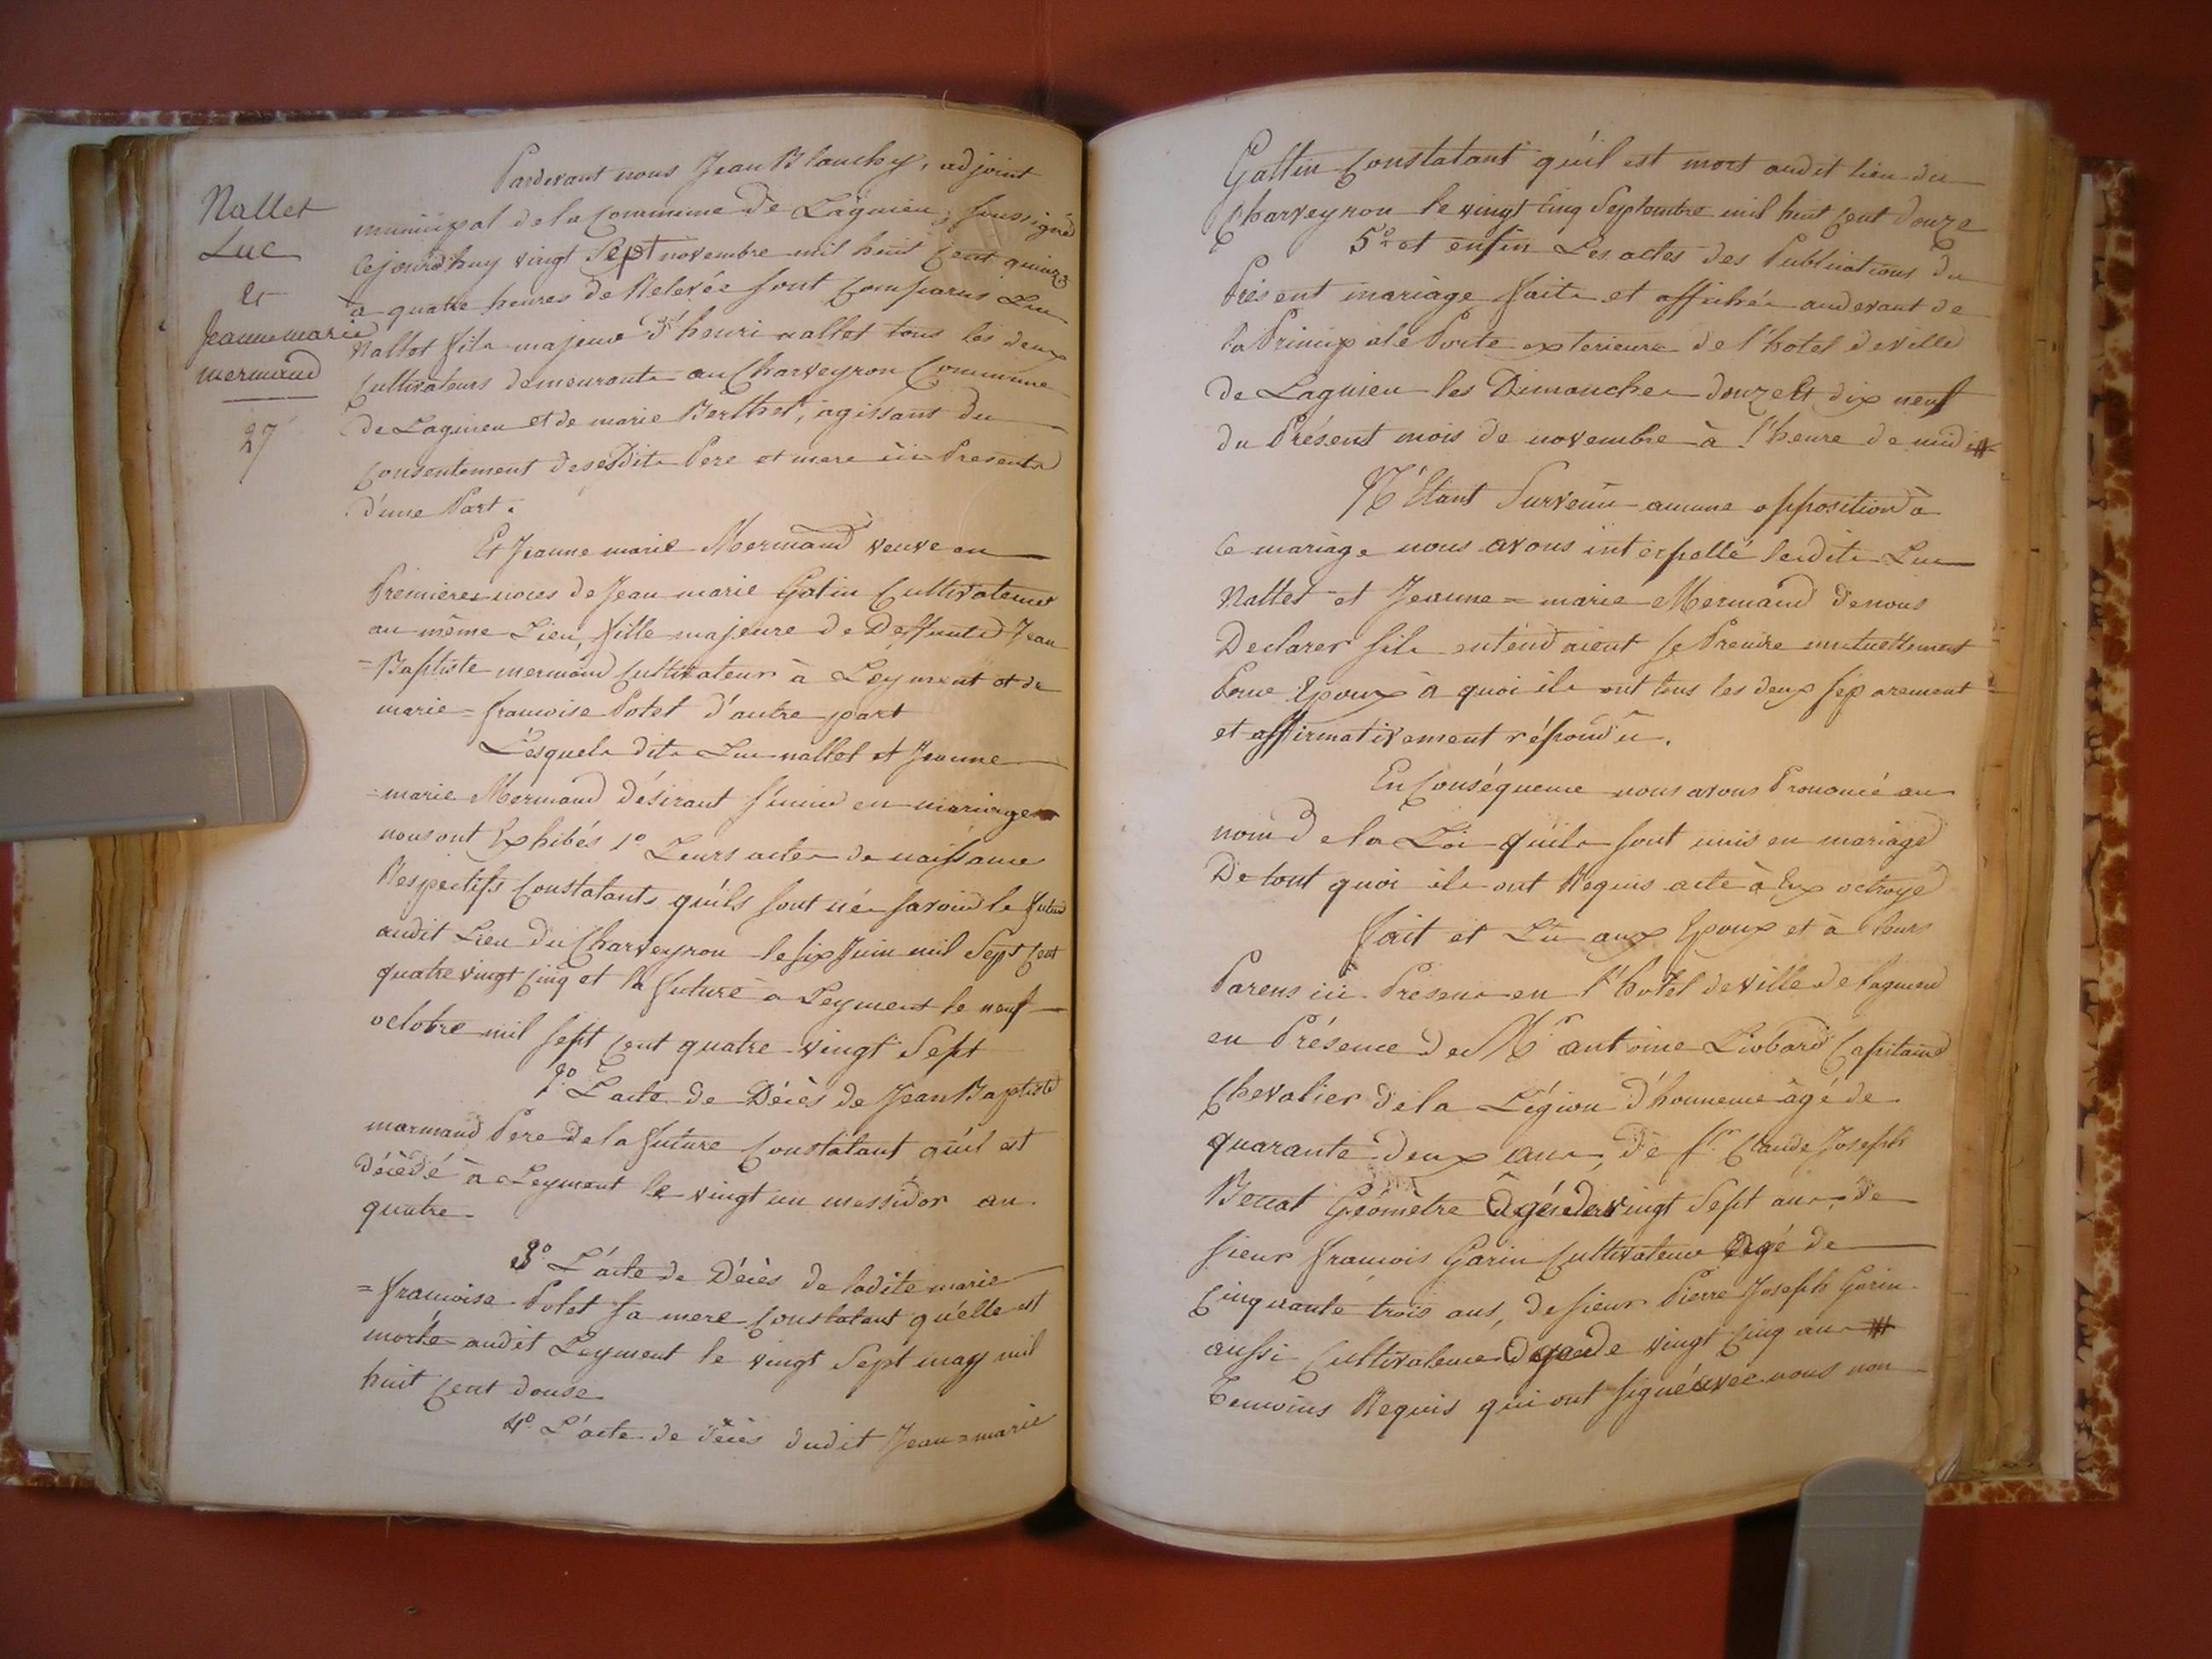 Nallet
Luc
et
Jeanne marie
mermand
27
Pardevant nous Jean Blanchy, adjoint
municipal de la Commune de Lagnieu, Soussigné
Cejourd'huy vingt Sept novembre mil huit Cent quinze
a quatre heures de Relevée sont Comparus Luc
Nallet fils majeur d'henri nallet tous les deux
Cultivateurs demeurants au Charveyron Commune
de Lagnieu et de marie Berthet, agissant du
Consentement desesdits Pere et mere ici Presents
d'une Part.
Et Jeanne marie Mermand veuve en
Premieres noces de Jean marie Gatin Cultivateur
au même Lieu, fille majeure de Deffunts Jean
=Baptiste mermand Cultivateur à Leyment et de
marie=francoise Polet d'autre part
Lesquels dits Luc nallet et Jeanne
=marie Mermand désirant s'unir en mariage
nous ont Exhibés 1º Leurs actes de naissance
Respectifs Constatants qu'ils sont nés savoir le futur
audit Lieu du Charveyron le six Juin mil Sept Cent
quatre vingt Cinq et la future a Leyment le neuf
octobre mil sept Cent quatre vingt Sept
2º L'acte de Décès de Jean Baptiste
mormand Pere de la future Constatant qu'il est
décèdé à Leyment le vingt un messidor an
quatre
3º L'acte de Décès de ladite marie
=francoise Polet sa mere Constatant qu'elle est
morte audit Leyment le vingt Sept may mil
huit Cent douse
4º L'acte de décès dudit Jean=marie
Gattin Constatant qu'il est mort audit lieu du
Charveyron le vingt Cinq Septembre mil huit Cent douze
5º et enfin Les actes des Publications du
Présent mariage faite et affichée audevant de
la Principale Porte exterieure de l'hotel deville
de Lagnieu les Dimanches douze et dix neuf
du Présent mois de novembre à l'heure de midi
N'étant Survenu aucune opposition à
Ce mariage nous avons interpellé lesdits Luc
Nallet et Jeanne=marie Mermand de nous
Declarer sils entendoient se Prendre mutuellement
Pour Epoux à quoi ils ont tous les deux séparement
et affirmativement répondu.
En Conséquence nous avons Prononcé au
nom de la Loi qu'ils sont unis en mariage
De tout quoi ils ont Requis acte à Eux octroyé
fait et Lu aux Epoux et à leurs
Parens ici Presens en l'hotel deville de lagnieu
en Présence de Mr antoine Liobard Capitaine
Chevalier de la Légion d'honneur âgé de
quarante deux ans, de Sr Claude Joseph
Geomètre âgé de vingt Sept ans, de
sieur francois Garin Cultivateur âgé de
Cinquante trois ans, de sieur Pierre Joseph Garin
aussi Cultivateur agé de vingt Cinq ans
Temoins Requis qui ont signé avec nous non